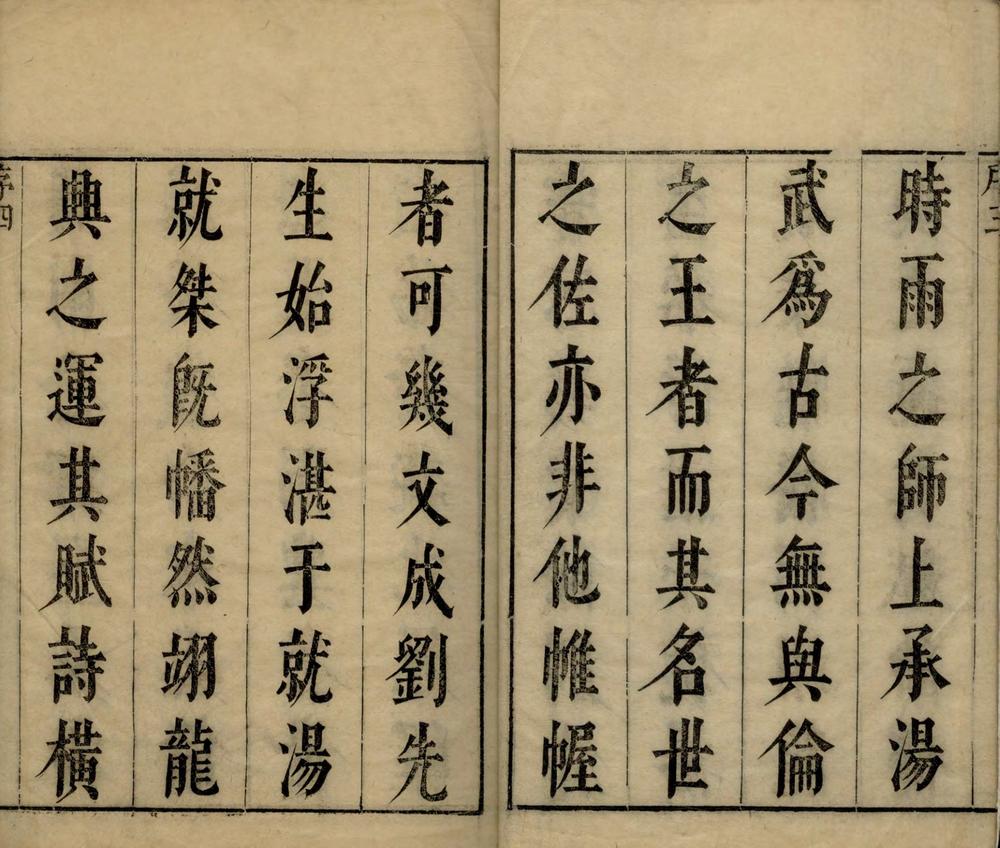 序三
時雨之師上承湯
武爲古今無與倫
之王者而其名世
之佐亦非他帷幄
者可幾文成劉先
生始浮湛于就湯
就桀旣幡然翊龍
興之運其賦詩橫
序四